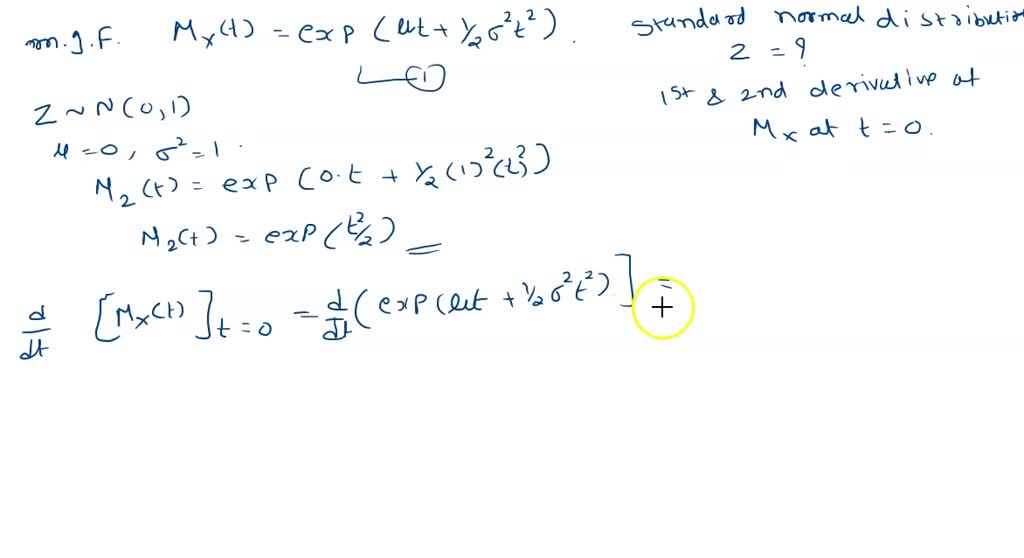 m.g.f. Mx(t) = exp (ut + 1/2 σ²t²).
(1)
Standard normal distribution
Z = ?
1st & 2nd derivative at
Mx at t = 0.
Z ~ N(0,1)
μ = 0, σ² = 1.
M2(t) = exp (0.t + 1/2 (1)²(t²))
M2(t) = exp (t²/2)
d/dt [Mx(t)]t=0 = d/dt (exp (ut + 1/2 σ²t²)] =